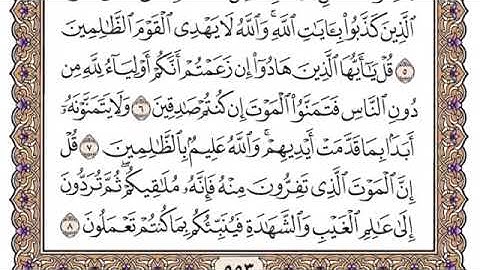 الَّذِينَ كَذَّبُوا۟ بِـَٔايَـٰتِ اللَّهِ ۚ وَاللَّهُ لَا يَهْدِى الْقَوْمَ الظَّـٰلِمِينَ
٥ قُلْ يَـٰٓأَيُّهَا الَّذِينَ هَادُوٓا۟ إِن زَعَمْتُمْ أَنَّكُمْ أَوْلِيَآءُ لِلَّهِ مِن
دُونِ النَّاسِ فَتَمَنَّوُا۟ الْمَوْتَ إِن كُنتُمْ صَـٰدِقِينَ ٦ وَلَا يَتَمَنَّوْنَهُۥٓ
أَبَدًۢا بِمَا قَدَّمَتْ أَيْدِيهِمْ ۚ وَاللَّهُ عَلِيمٌۢ بِالظَّـٰلِمِينَ ٧ قُلْ
إِنَّ الْمَوْتَ الَّذِى تَفِرُّونَ مِنْهُ فَإِنَّهُۥ مُلَـٰقِيكُمْ ۖ ثُمَّ تُرَدُّونَ
إِلَىٰ عَـٰلِمِ الْغَيْبِ وَالشَّهَـٰدَةِ فَيُنَبِّئُكُم بِمَا كُنتُمْ تَعْمَلُونَ ٨
٥٥٣